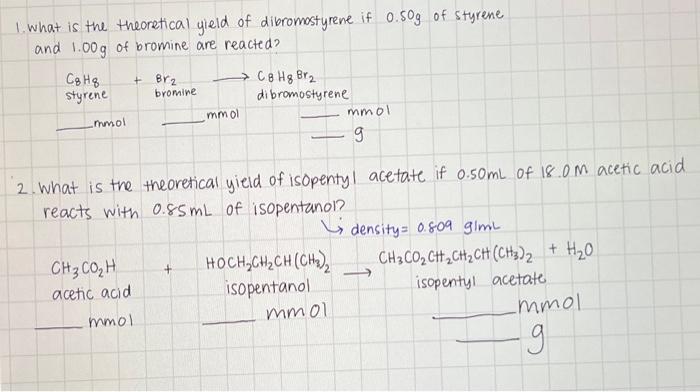 1. What is the theoretical yield of dibromostyrene if 0.50g of styrene
and 1.00g of bromine are reacted?
C8H8 + Br2 → C8H8Br2
styrene bromine dibromostyrene
___mmol ___mmol ___mmol
___g
2. What is the theoretical yield of isopentyl acetate if 0.50mL of 18.0M acetic acid
reacts with 0.85mL of isopentanol?
↳ density= 0.809 g/mL
CH3CO2H + HOCH2CH2CH(CH3)2 → CH3CO2CH2CH2CH(CH3)2 + H2O
acetic acid isopentanol isopentyl acetate
___mmol ___mmol ___mmol
___g